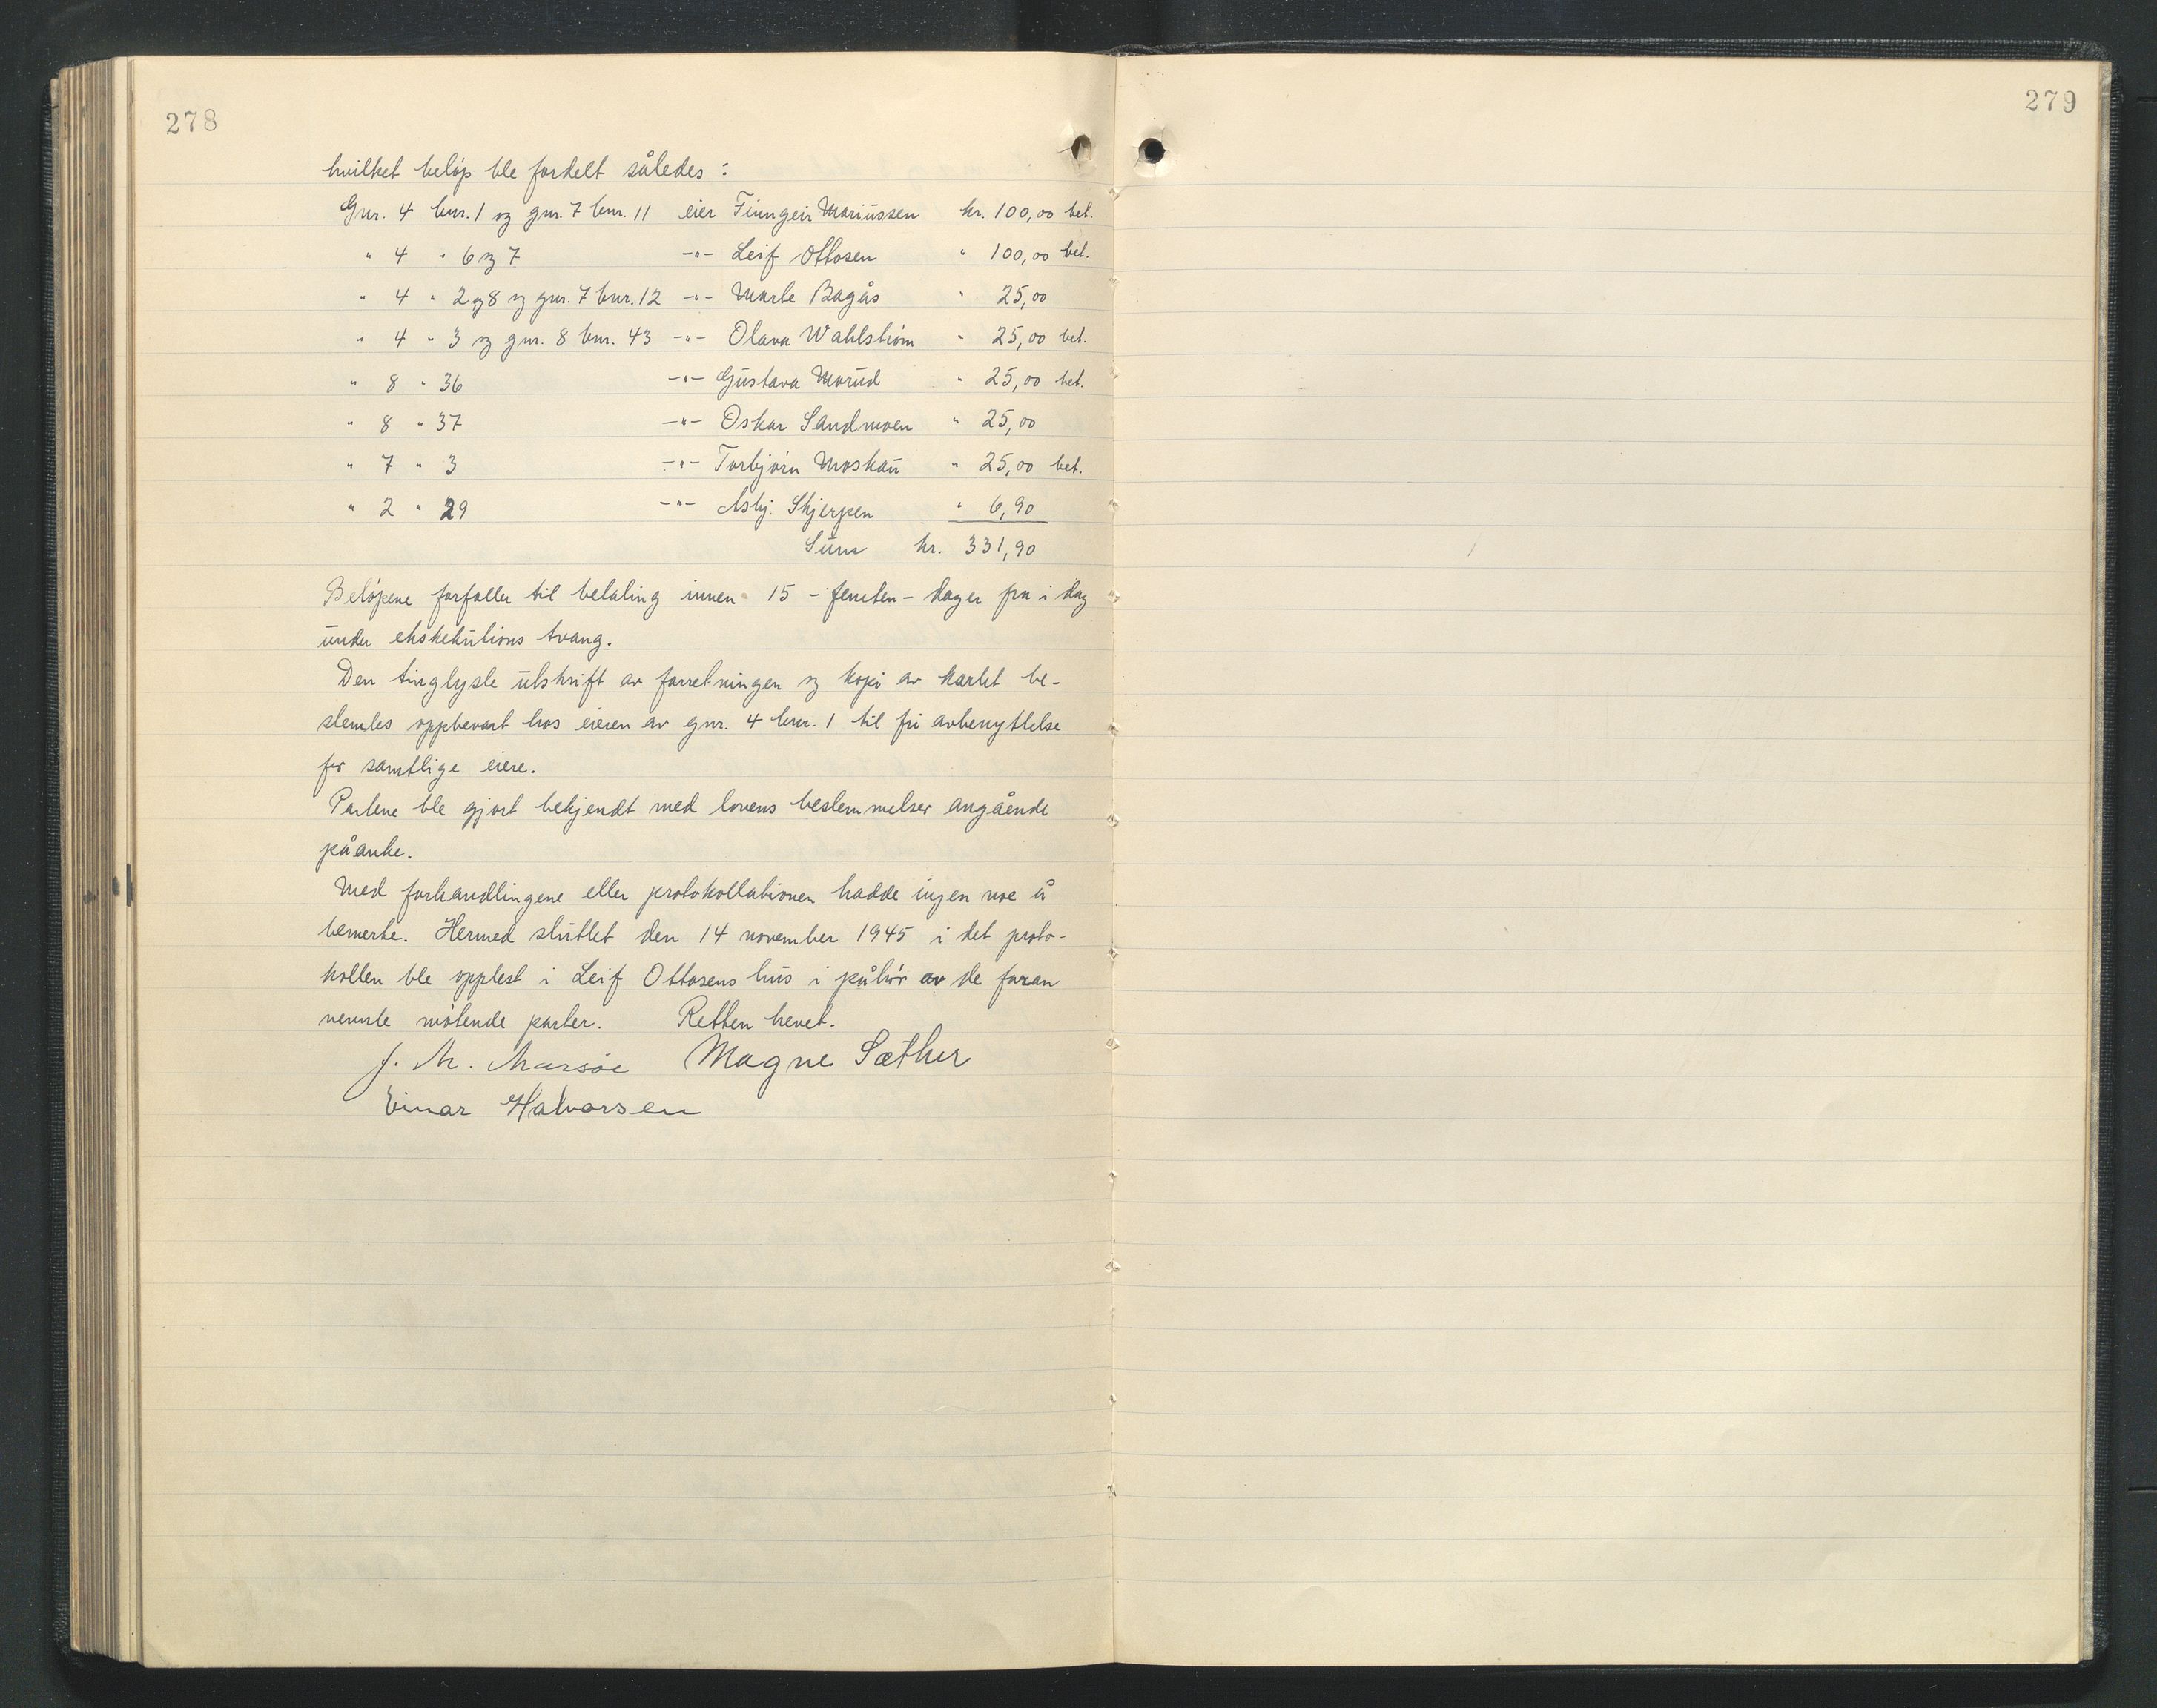 278
279
hvilket beløp ble fordelt således:
Gnr. 4 bnr. 1 og gnr. 7 bnr. 11 eier Finngeir Mariussen kr. 100,00 bet.
" 4 " 6 og 7 -"- Leif Ottosen " 100,00 bet.
" 4 " 2 og 8 og gnr. 7 bnr. 12 -"- Marte Bagås " 25,00
" 4 " 3 og gnr. 8 bnr. 43 -"- Olava Wahlstrøm " 25,00 bet.
" 8 " 36 -"- Gustava Morud " 25,00 bet.
" 8 " 37 -"- Oskar Sandmoen " 25,00
" 7 " 3 -"- Torbjørn Moskau " 25,00 bet.
" 2 " 29 -"- Asbj. Skjerpen " 6,90
Sum kr. 331,90
Beløpene forfaller til betaling innen 15 - femten - dager fra i dag
under ekskekutions tvang.
Den tinglyste utskrift av forretningen og kopi av kartet be-
stemtes oppbevart hos eieren av gnr. 4 bnr. 1 til fri avbenyttelse
for samtlige eiere.
Partene ble gjort bekjendt med lovens bestemmelser angående
påanke.
Med forhandlingene eller protokollationen hadde ingen noe å
bemerke. Hermed sluttet den 14 november 1945 i det proto-
kollen ble opplest i Leif Ottosens hus i påhør av de foran
nevnte møtende parter. Retten hevet.
J. M. Magne Sæther
Einar Halvorsen